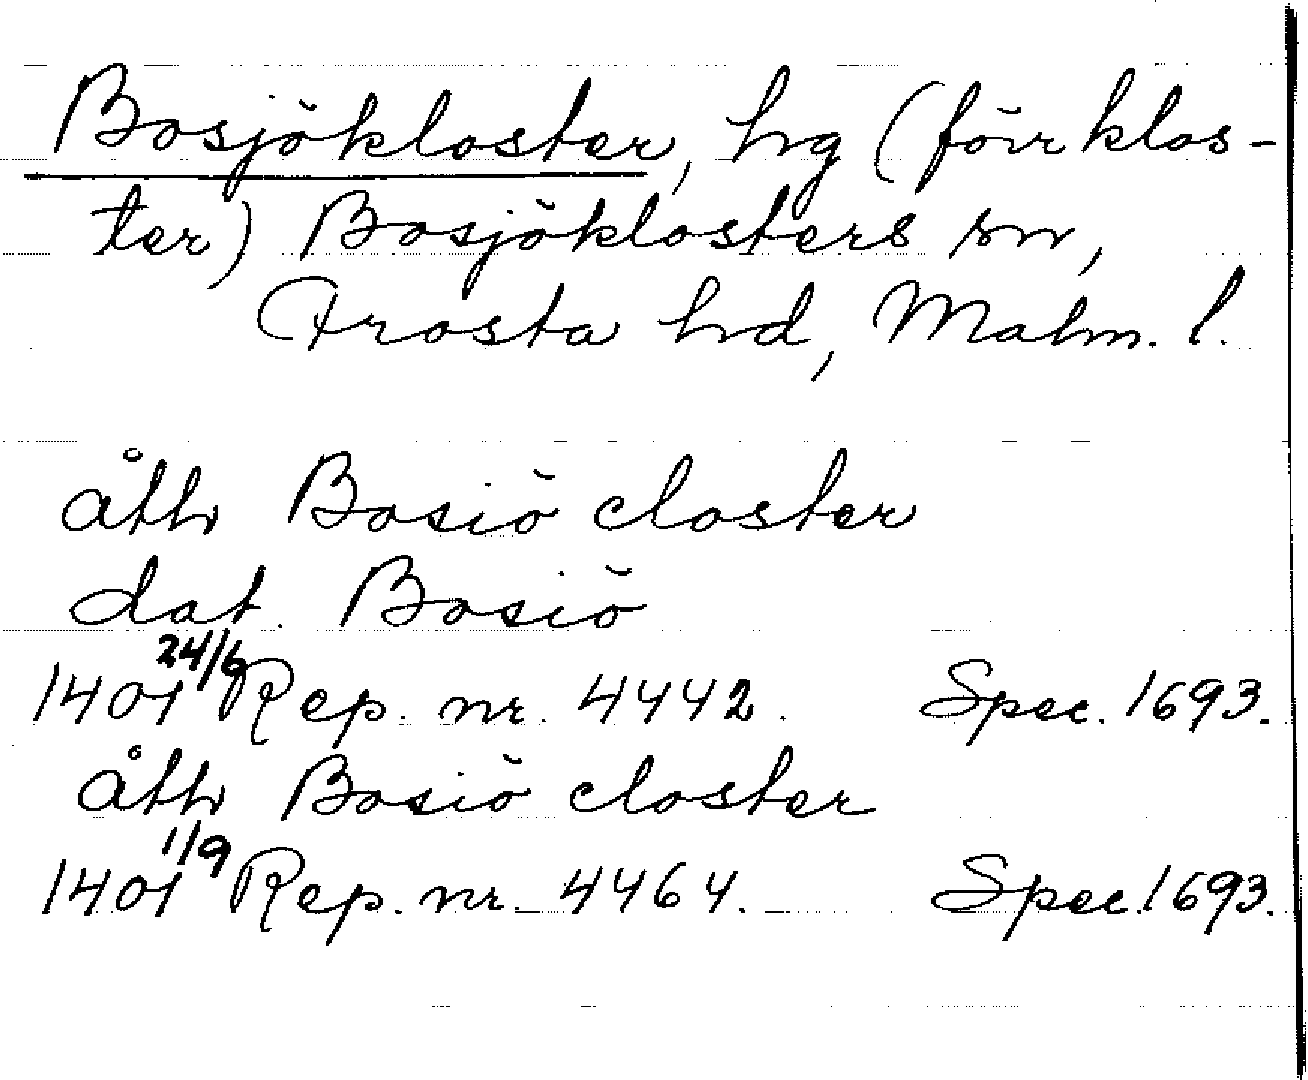 Bosjökloster, hg (förr klos-
ter) Bosjöklosters sn,
Frosta hd, Malm. l.
åth Bosiö closter
dat. Bosiö
1401 24/6 Rep. nr. 4442. Spec. 1693.
åth Bosiö closter
1401 1/9 Rep. nr. 4464. Spec. 1693.